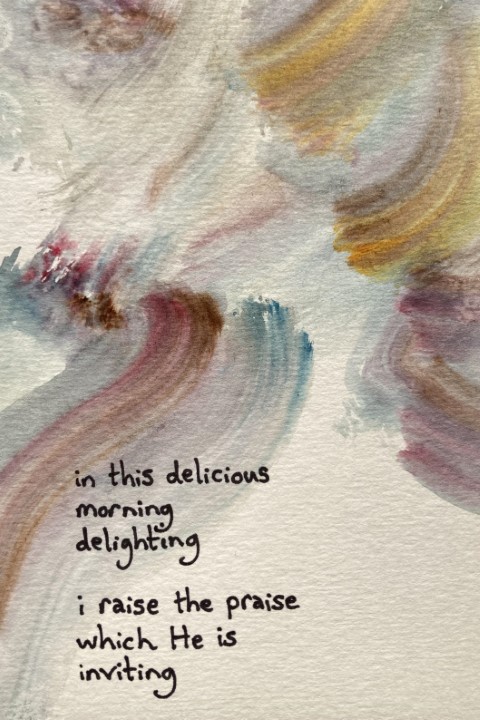 in this delicious
morning
delighting
i raise the praise
which He is
inviting